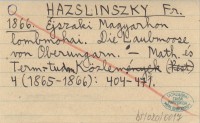 O HAZSLINSZKY Fr.
1866. Éjszaki Magyarhon
lombmohai. Die Laubmoose
von Oberungarn. – Math. és
Termtud. Közlem
4 (1865-1866): 404-